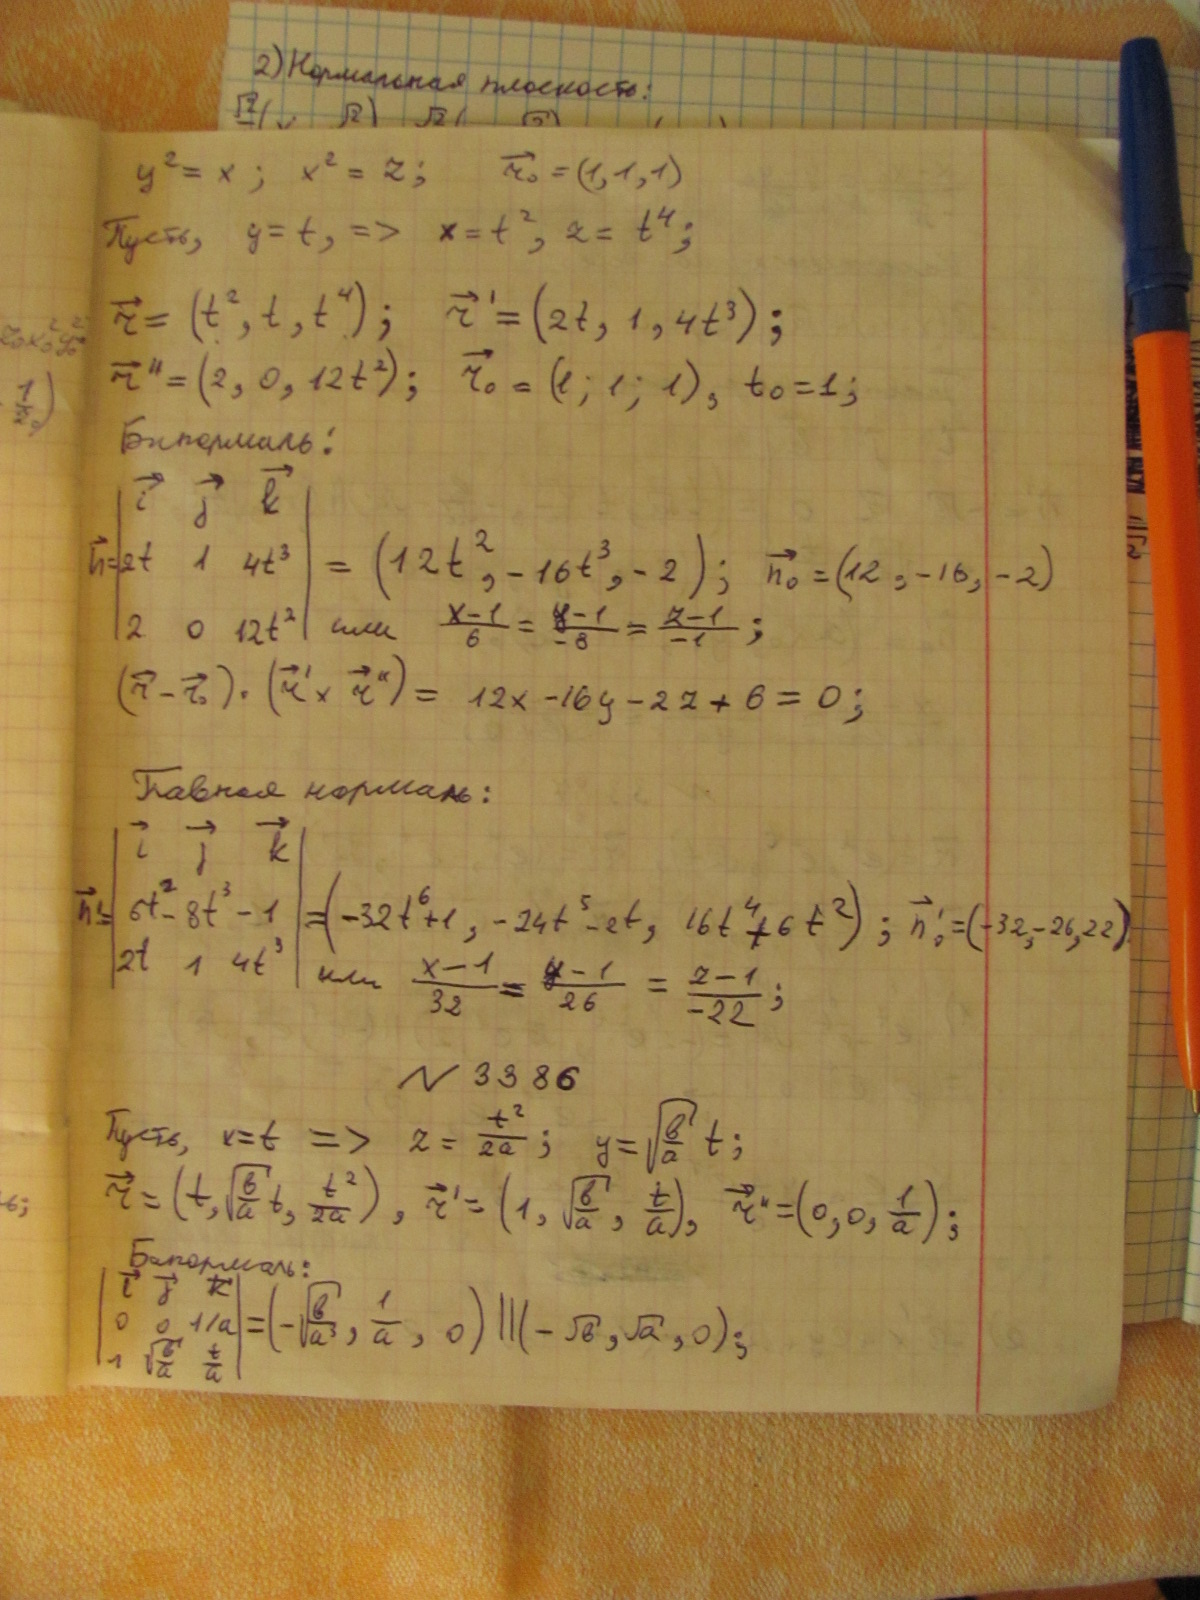 2) Нормальная плоскость:
y² = x ; x² = z ; r⃗₀ = (1, 1, 1)
Пусть, y = t, => x = t², z = t⁴;
r⃗ = (t², t, t⁴) ; r⃗' = (2t, 1, 4t³) ;
r⃗'' = (2, 0, 12t²) ; r⃗₀ = (1 ; 1 ; 1), t₀ = 1;
Бинормаль:
i⃗ j⃗ k⃗
n⃗ = | 2t 1 4t³ | = (12t², -16t³, -2) ; n⃗₀ = (12, -16, -2)
2 0 12t² или (x-1)/6 = (y-1)/-8 = (z-1)/-1 ;
(r⃗ - r⃗₀) · (r⃗' × r⃗'') = 12x - 16y - 2z + 6 = 0;
Главная нормаль:
i⃗ j⃗ k⃗
n⃗' = | 6t² -8t³ -1 | = (-32t⁶+1, -24t⁵-2t, 16t⁴+6t²) ; n⃗'₀ = (-32, -26, 22)
2t 1 4t³ или (x-1)/32 = (y-1)/26 = (z-1)/-22 ;
N 3386
Пусть, x = t => z = t²/2a ; y = √(в/a) t;
r⃗ = (t, √(в/a) t, t²/2a), r⃗' = (1, √(в/a), t/a), r⃗'' = (0, 0, 1/a) ;
Бинормаль:
i⃗ j⃗ k⃗
| 0 0 1/a | = (-√(в/a³), 1/a, 0) || (-√в, √a, 0);
1 √(в/a) t/a